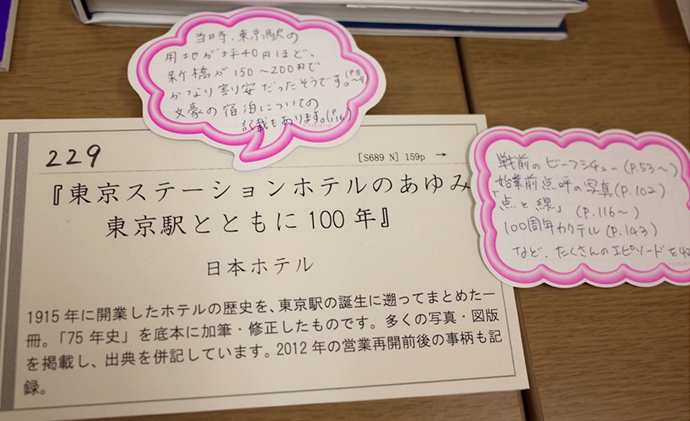 当時、東京駅の
用地が坪40円ほど、
新橋が150〜200円で
かなり割安だったそうです。(P.8〜9)
文豪の宿泊についての
記載もあります。(P.16)
229
[S689 N] 159p →
『東京ステーションホテルのあゆみ
東京駅とともに100年』
日本ホテル
1915年に開業したホテルの歴史を、東京駅の誕生に遡ってまとめた一
冊。「75年史」を底本に加筆・修正したものです。多くの写真・図版
を掲載し、出典を併記しています。2012年の営業再開前後の事柄も記
録。
戦前のビーフシチュー(P.53〜)
始業前点呼の写真(P.102)
「点と線」(P.116〜)
100周年カクテル(P.143)
など、たくさんのエピソードを